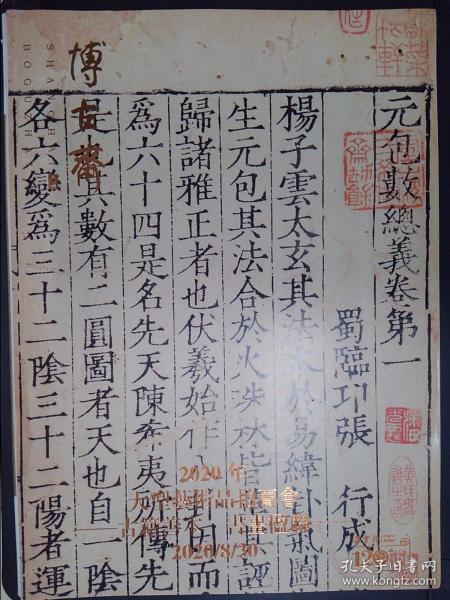 元包數總義卷第一
蜀臨卭張 行成
楊子雲太玄其法本於易緯卦氣圖
生元包其法合於火珠林皆革其誣
歸諸雅正者也伏羲始作 因而
爲六十四是名先天陳希夷所傳先
是也其數有二圓圖者天也自一陰
各六變爲三十二陰三十二陽者運
博古齋
2020年
大型藝術品拍賣會
古籍善本
2020/8/30
孔夫子旧书网